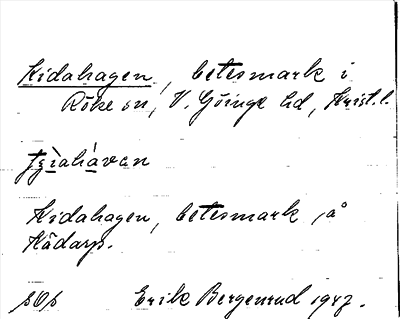 Kidahagen, betesmark i
Röke sn, V. Göinge hd, Krist.l.
Kidahagen, betesmark, å
Kådarp.
Erik Bergenrud 1947.